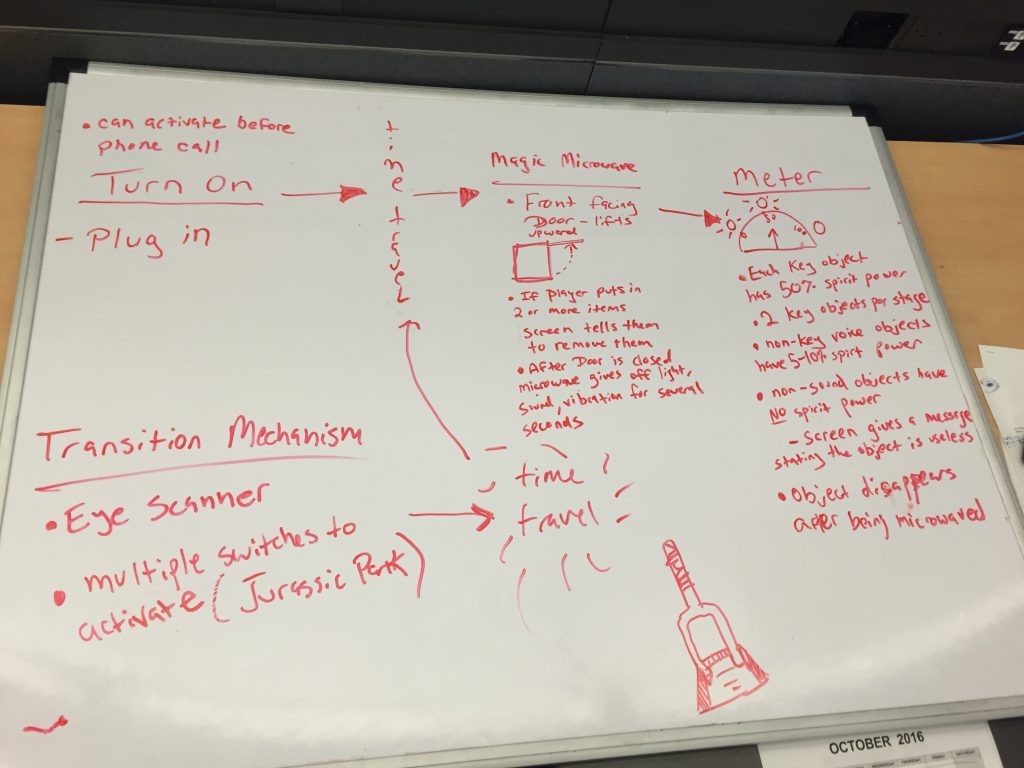 • can activate before
phone call
Turn On
- Plug in
time travel
Magic Microwave
• Front facing
Door - lifts
upward
• If player puts in
2 or more items
screen tells them
to remove them
• After Door is closed
microwave gives off light,
sound, vibration for several
seconds
Meter
0 50 100
• Each Key object
has 50% spirit power
• 2 key objects per stage
• non-key voice objects
have 5-10% spirt power
• non-sound objects have
NO spirit power
- Screen gives a message
stating the object is useless
• Object disappears
after being microwaved
Transition Mechanism
• Eye Scanner
• multiple switches to
activate (Jurassic Park)
time
travel
OCTOBER 2016
WEDNESDAY THURSDAY FRIDAY SATURDAY